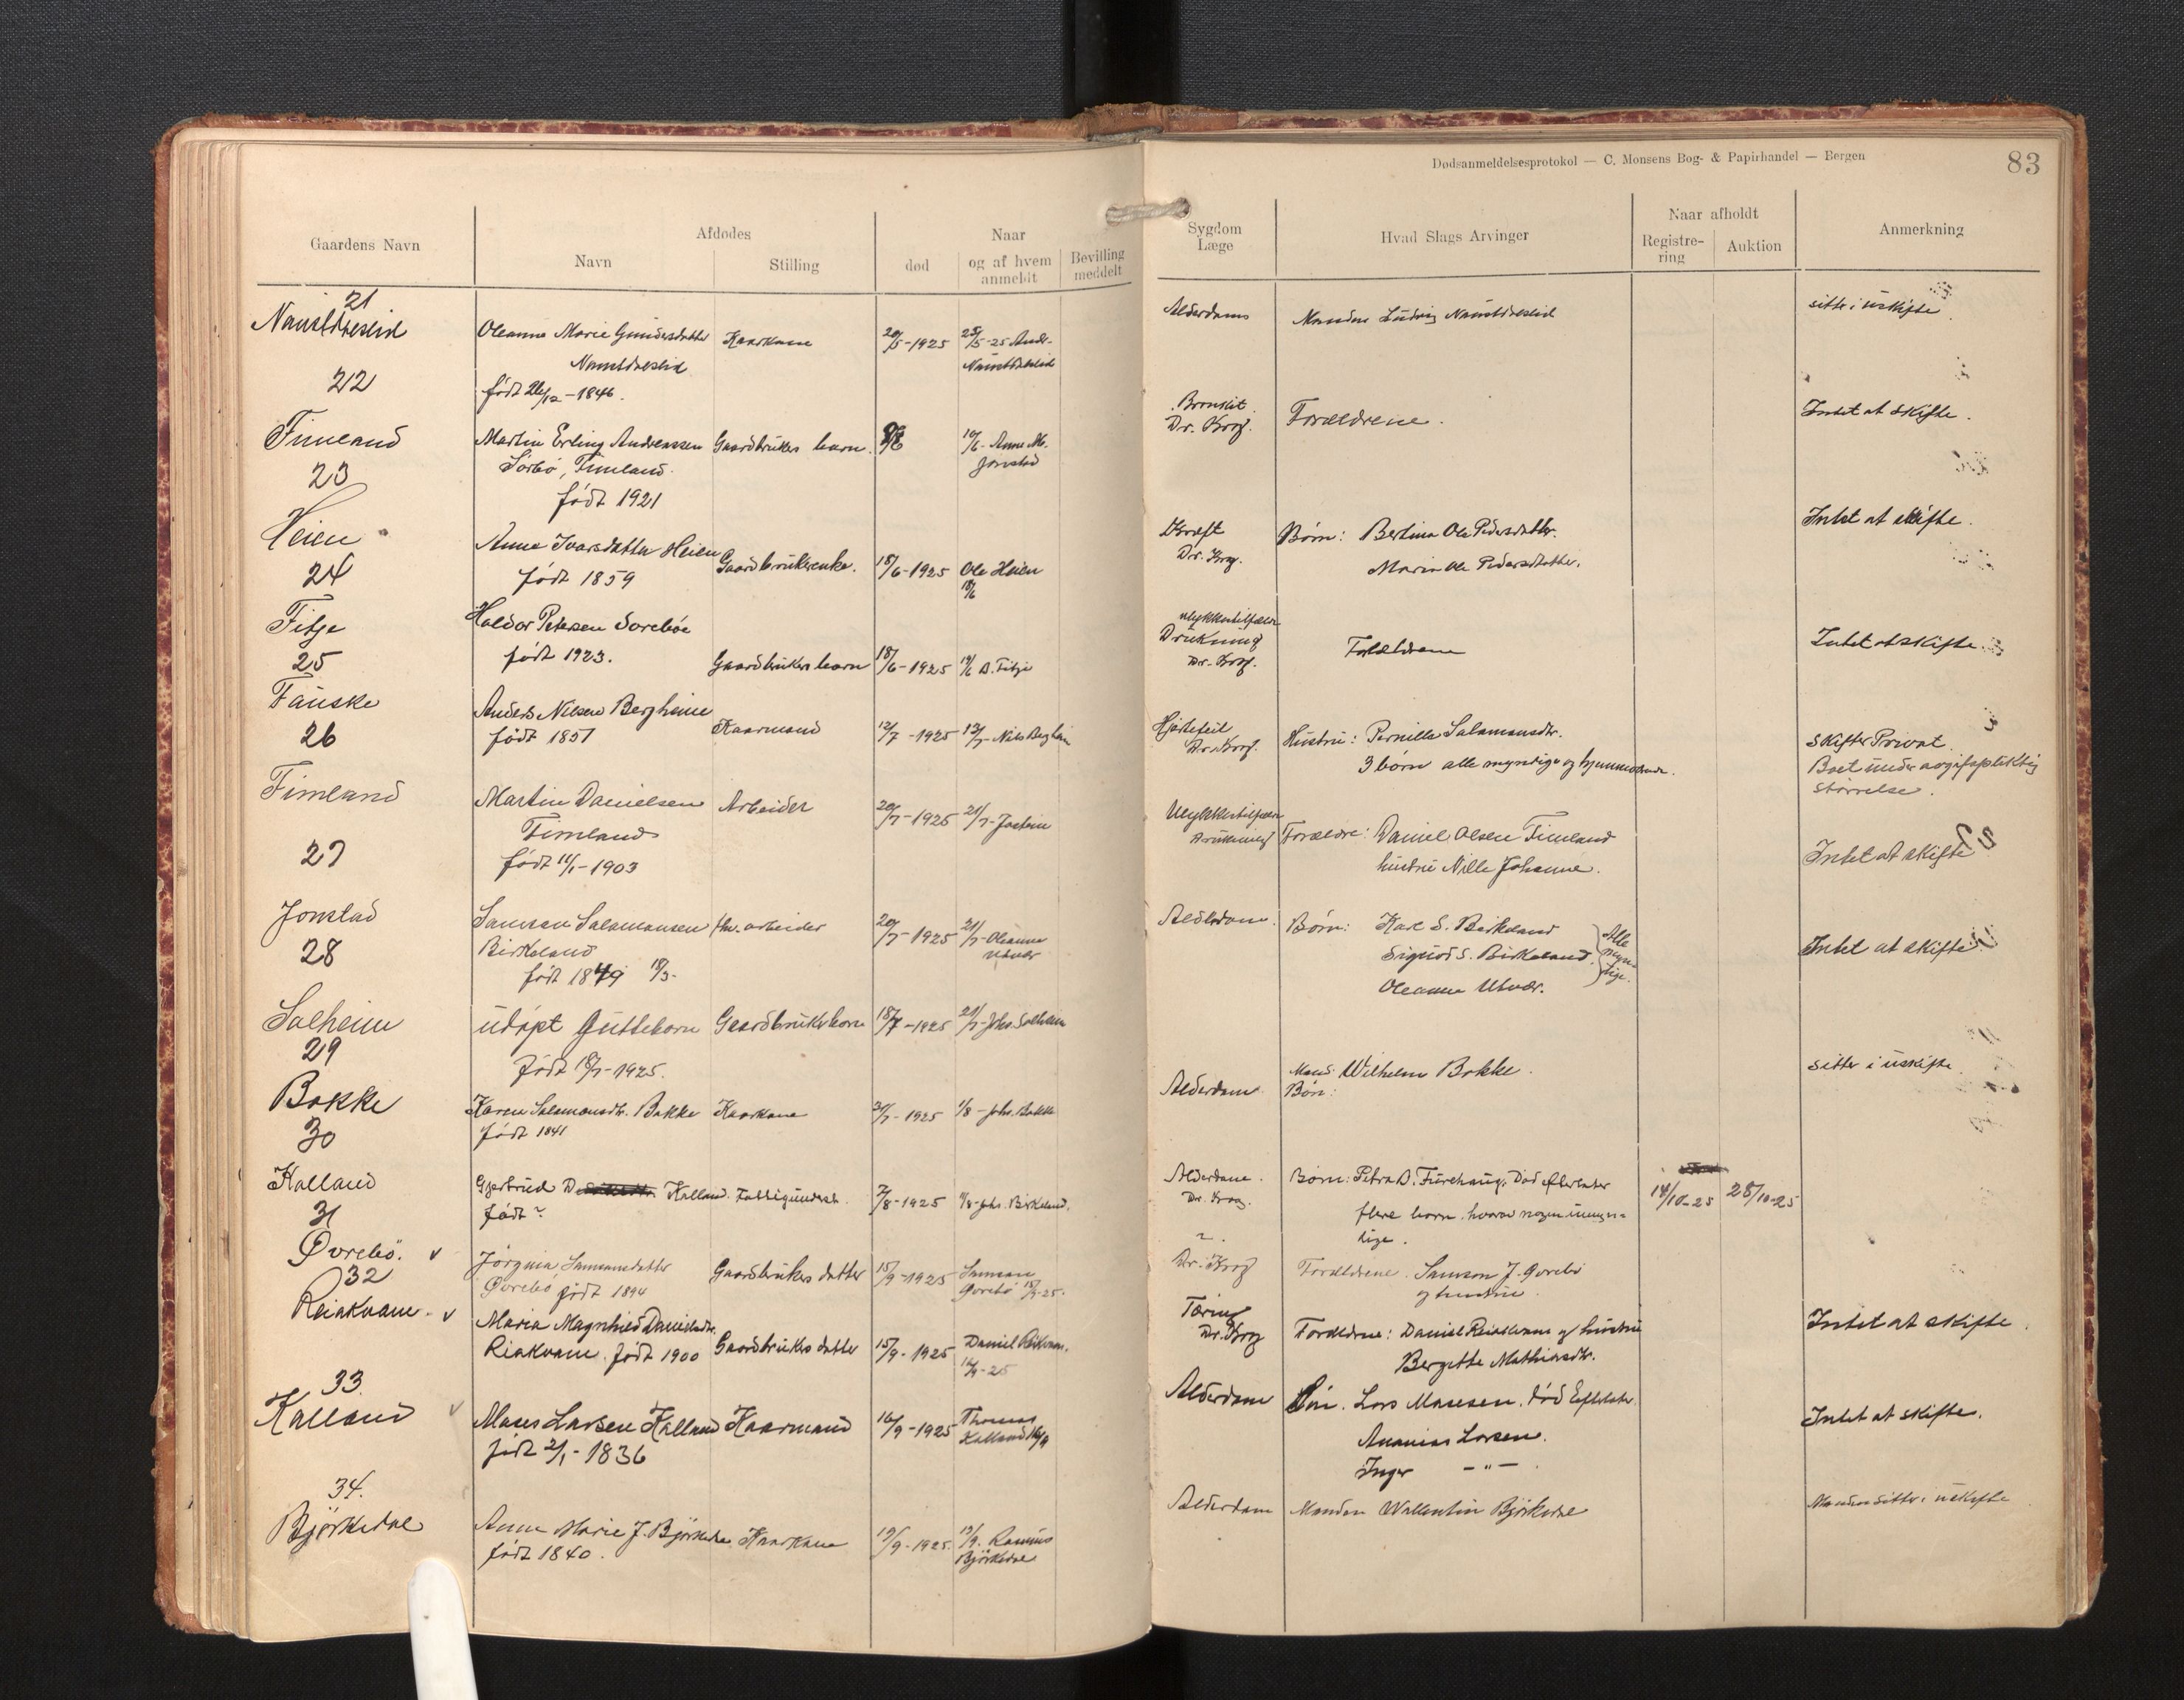 Dødsanmeldelsesprotokol — C. Monsens Bog- & Papirhandel — Bergen
83
Gaardens Navn
Afdødes
Navn
Stilling
Naar
død
og af hvem anmeldt
Bevilling meddelt
Sygdom
Læge
Hvad Slags Arvinger
Naar afholdt
Registre-
ring
Auktion
Anmerkning
21
Navstdalslid
Oleanna Marie Gundersdatter
født 26/12 - 1846.
Kaarkone
20/5-1925
25/5-25 Andr.
Alderdoms
Manden Ludvig
sitter i uskifte
22
Timland
Martin Erling Andreassen
Sørbø, Timland.
født 1921
Gaardbrukers barn.
10/6- Anne M.
Jonstad
Bronkit
Dr. Krog.
Forældrene.
Intet at skifte.
23
Heien
Anna Ivarsdatter Heien
født 1859
Gaardbrukerenke.
18/6-1925
Ole Heien
18/6
Kræft
Dr. Krog.
Børn: Bertina Ole Pedersdatter.
Marie Ole Pedersdatter.
Intet at skifte.
24
Fitje
Haldor Petersen Sorebøe
født 1923.
Gaardbrukers barn
18/6-1925
19/6 D. Fitje
Ulykkestilfælde
Drukning
Dr. Krog.
Forældrene
Intet at skifte.
25
Fauske
Anders Nilsen Bergheim
født 1851
Kaarmand
12/7-1925
13/7- Nils Bergheim
Hjertefeil
Dr. Krog.
Hustru: Pernille Salamonsdr.
3 børn alle myndige og hjemmeværende.
Skifter Privat.
Boet under avgiftspliktig
størrelse.
26
Timland
Martin Danielsen
Timland
født 11/1-1903
Arbeider
20/7-1925
21/7- Jostein
Ulykkestilfælde
drukning
Forældre: Daniel Olsen Timland
hustru Nille Johanne.
Intet at skifte
27
Jonstad
Samson Salamonsen
Birkeland
født 1849 18/3-
fhv. arbeider
20/7-1925
21/7- Oleanna
Utvær
Alderdom.
Børn: Karl S. Birkeland
Sigurd S. Birkeland
Oleanna Utvær.
Alle
myn-
dige.
Intet at skifte
28
Solheim
udøpt Guttebarn
født 18/7-1925.
Gaardbrukers barn
18/7-1925
21/7- Johs. Solheim
29
Bakke
Karen Salamonsdr. Bakke
født 1841
Kaarkone
31/7-1925
1/8 - Johs. Bakke
Alderdom
Mand: Wilhelm Bakke.
Børn:
sitter i uskifte
30
Kalland
Gjertrud D. Kalland.
født?
Fattigunderst.
7/8-1925
11/8- Johs. Birkeland.
Alderdom.
Dr. Krog.
Børn: Petra D. Furehaug. Død efterlater
flere barn. hvorav nogen umyn-
dige.
14/10-25
28/10-25
31
Øvrebø. v
Jørgina Samsonsdatter
Øvrebø født 1894
Gaardbrukers datter
15/9-1925
Samson
Øvrebø 15/9-25.
?
Dr. Krog
Forældrene. Samson J. Øvrebø
og hustru.
32
Reiakvam. v
Maria Magnhild Danielsdr.
Riakvam. født 1900
Gaardbrukers datter
15/9-1925
Daniel Reikvam.
Tæring
Dr. Krog
Forældrene: Daniel Reiakvam og hustru
Bergitte Mathiasdr.
Intet at skifte.
33.
Kalland v
Moses Larsen Kalland
født 2/1-1836
Kaarmand
16/9-1925
Thomas
Kalland 16/9
Alderdom
Børn. Lars Mosesen. død Efterlater
Ananias Larsen.
Inger —"—
Intet at skifte.
34.
Bjørkedal
Anne Marie J. Bjørkedal
født 1840.
Kaarkone
19/9-1925.
19/9. Rasmus
Bjørkedal
Alderdom
Manden Wallentin Bjørkedal
Manden sitter i uskifte